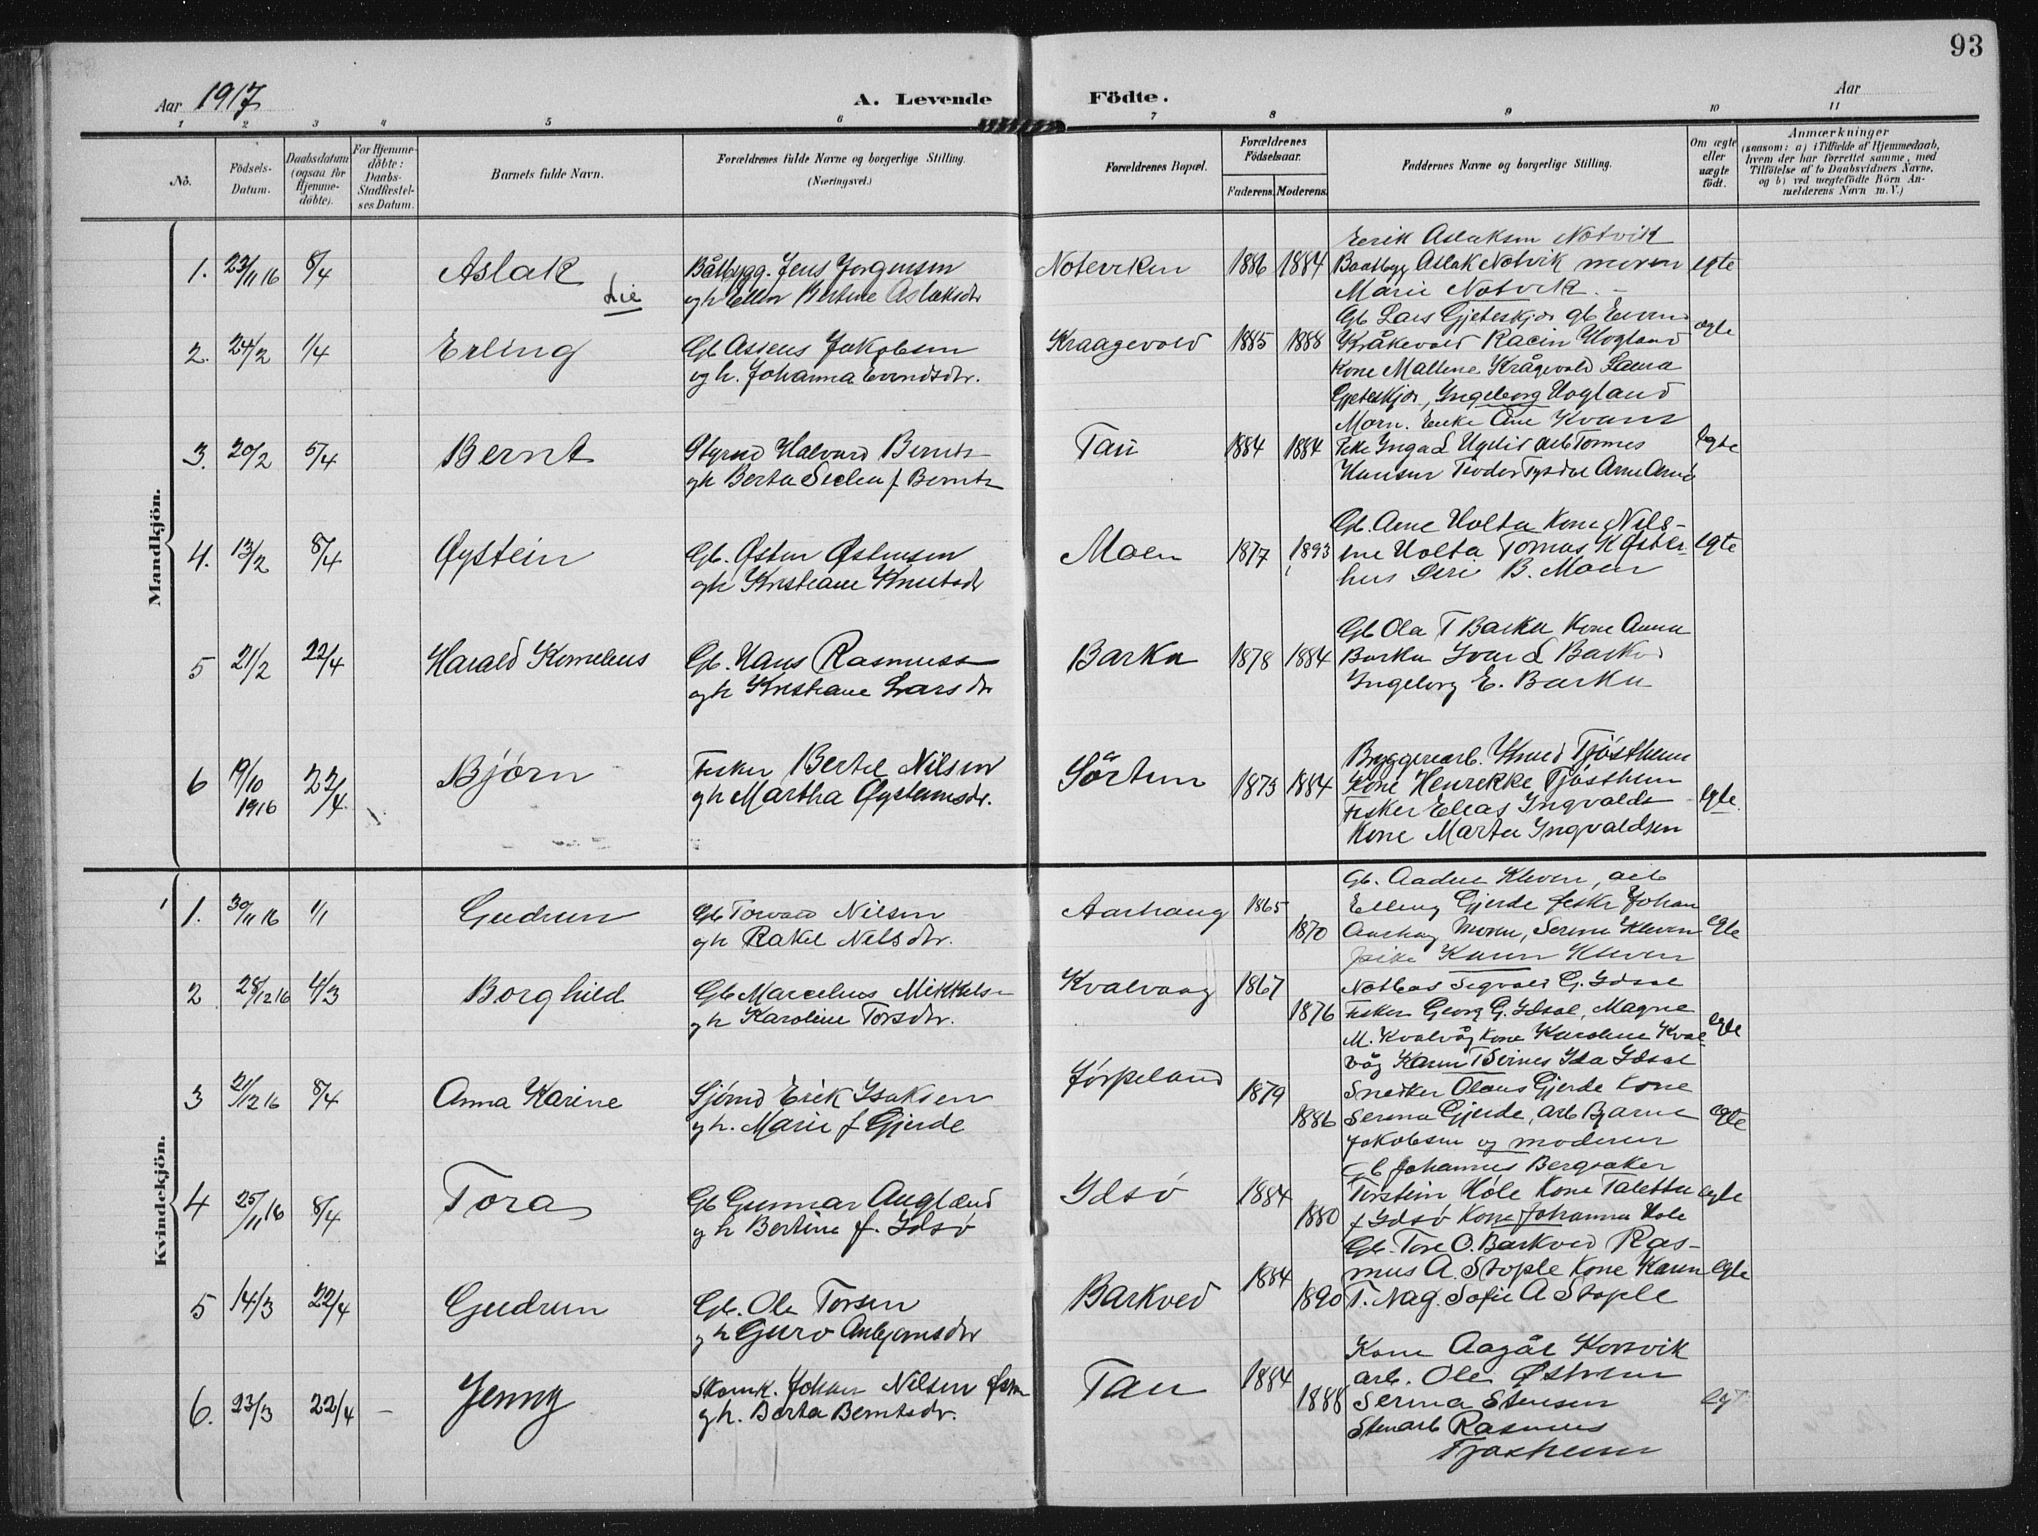 93
Aar 1917
A. Levende Födte.
Aar
1 2 3 4 5 6 7 8 9 10 11
No.
Födsels-Datum.
Daabsdatum (ogsaa for Hjemmedöbte).
For Hjemmedöbte: Daabs-Stadfæstelses Datum.
Barnets fulde Navn.
Forældrenes fulde Navne og borgerlige Stilling. (Næringsvei.)
Forældrenes Bopæl.
Forældrenes Födselsaar.
Faderens. Moderens.
Faddernes Navne og borgerlige Stilling.
Om ægte eller uægte födt.
Anmærkninger
(saasom: a) i Tilfælde af Hjemmedaab, hvem der har forrettet samme, med Tilföielse af to Daabsvidners Navne, og b) ved uægtefödte Börn Anmelderens Navn m. V.)
Mandkjön.
1. 23/11 16 8/4 Aslak Lie
Båtbygg. Jens Jorgensen
og h Ellen Bertine Aslaksdr
Noteviken 1886 1884
Eerik Aslaksen Notvik
Baatbygg Aslak Notvik moren
Marie Notvik.
egte
2. 24/2 1/4 Erling
Gb Asseus Jakobsen
og h. Johanna Evendsdr.
Kraagevold 1885 1888
Gb Lars Gjeteskjær gb Evend
Kråkevold Racin Hogland
Kone Mallene Krågevold Laura
Gjeteskjær, Ingeborg Hogland
ægte
3. 20/2 5/4 Bernt
Styrmd Halvard Berntsen
og h Berta Secilia f Berntsen
Tau 1884 1884
Morn. Enke Ane Kvam
Hansen Teodor Tysdal Arne
egte
4. 13/2 8/4 Øystein
Gb. Østen Østensen
og h Kristiane Knutsdr
Moen 1877 1893
Gb. Arne Holta Kone Nils-
ine Holta Tomas K Øster-
hus Siri B. Moen
egte
5 21/2 22/4 Harald Kornelius
Gb. Hans Rasmuss
og h Kristiane Larsdr
Barka 1878 1884
Gb Ola T Barka Kone Anna
Barka Ivar L Barkve
Ingeborg E. Barka
6 19/10 1916 22/4 Bjørn
Fisker Bertel Nilsen
og h Martha Øysteinsdr.
Sørtun 1873 1884
Byggearb. Knud Tjøstheim
Kone Henrikke Tjøstheim
Fisker Elias Ingvalds
Kone Marta Ingvaldsen
egte.
Kvindekjön.
1. 30/11 16 1/1 Gudrun
Gb Torvald Nilsen
og h Rakel Nilsdr.
Aarhaug 1865 1870
Gb. Aadne Kleven, arb
Elling Gjerde fisker Johan
Aarhaug Moren, Serine Kleven
Pike Karen Kleven
egte
2 28/12 16 4/3 Borghild
Gb Marcelius Mikkelsen
og h Karoline Torsdr.
Kvalvaag 1867 1876
Notbas Sigvald G. Idsal
Fisker Georg G. Idsal, Magne
M. Kvalvåg Kone Karoline Kval-
våg Karen T Svines Ida Idsal
egte
3 21/12 16 8/4 Anna Karine
Sjømd Erik Isaksen
og h. Marie f Gjerde
Jørpeland 1879 1886
Snekker Olaus Gjerde Kone
Serina Gjerde, arb Bjarne
Jakobsen og moderen
egte
4 25/11 16 8/4 Tora
Gb Gunnar Augland
og h Bertine f. Idsø
Idsø 1884 1880
Gb Johannes Bergsaker
Torstein Hole Kone Taletta
f Idsø Kone Johanna Hole
egte
5 14/3 22/4 Gudrun
Gb. Ole Torsen
og h Guro Asbjørnsdr
Barkved 1884 1890
Gb. Tore O. Barkved Ras-
mus A. Stople Kone Karen
T. Nag. Sofie A Stople
egte
6. 23/3 22/4 - Jenny
Skomk. Johan Nilsen
og h. Berta Berntsdr.
Tau 1884 1888
Kone Aagåt Korsvik
arb. Ole Østrem
Serina Stensen
Stenarb Rasmus
Tjostheim
egt